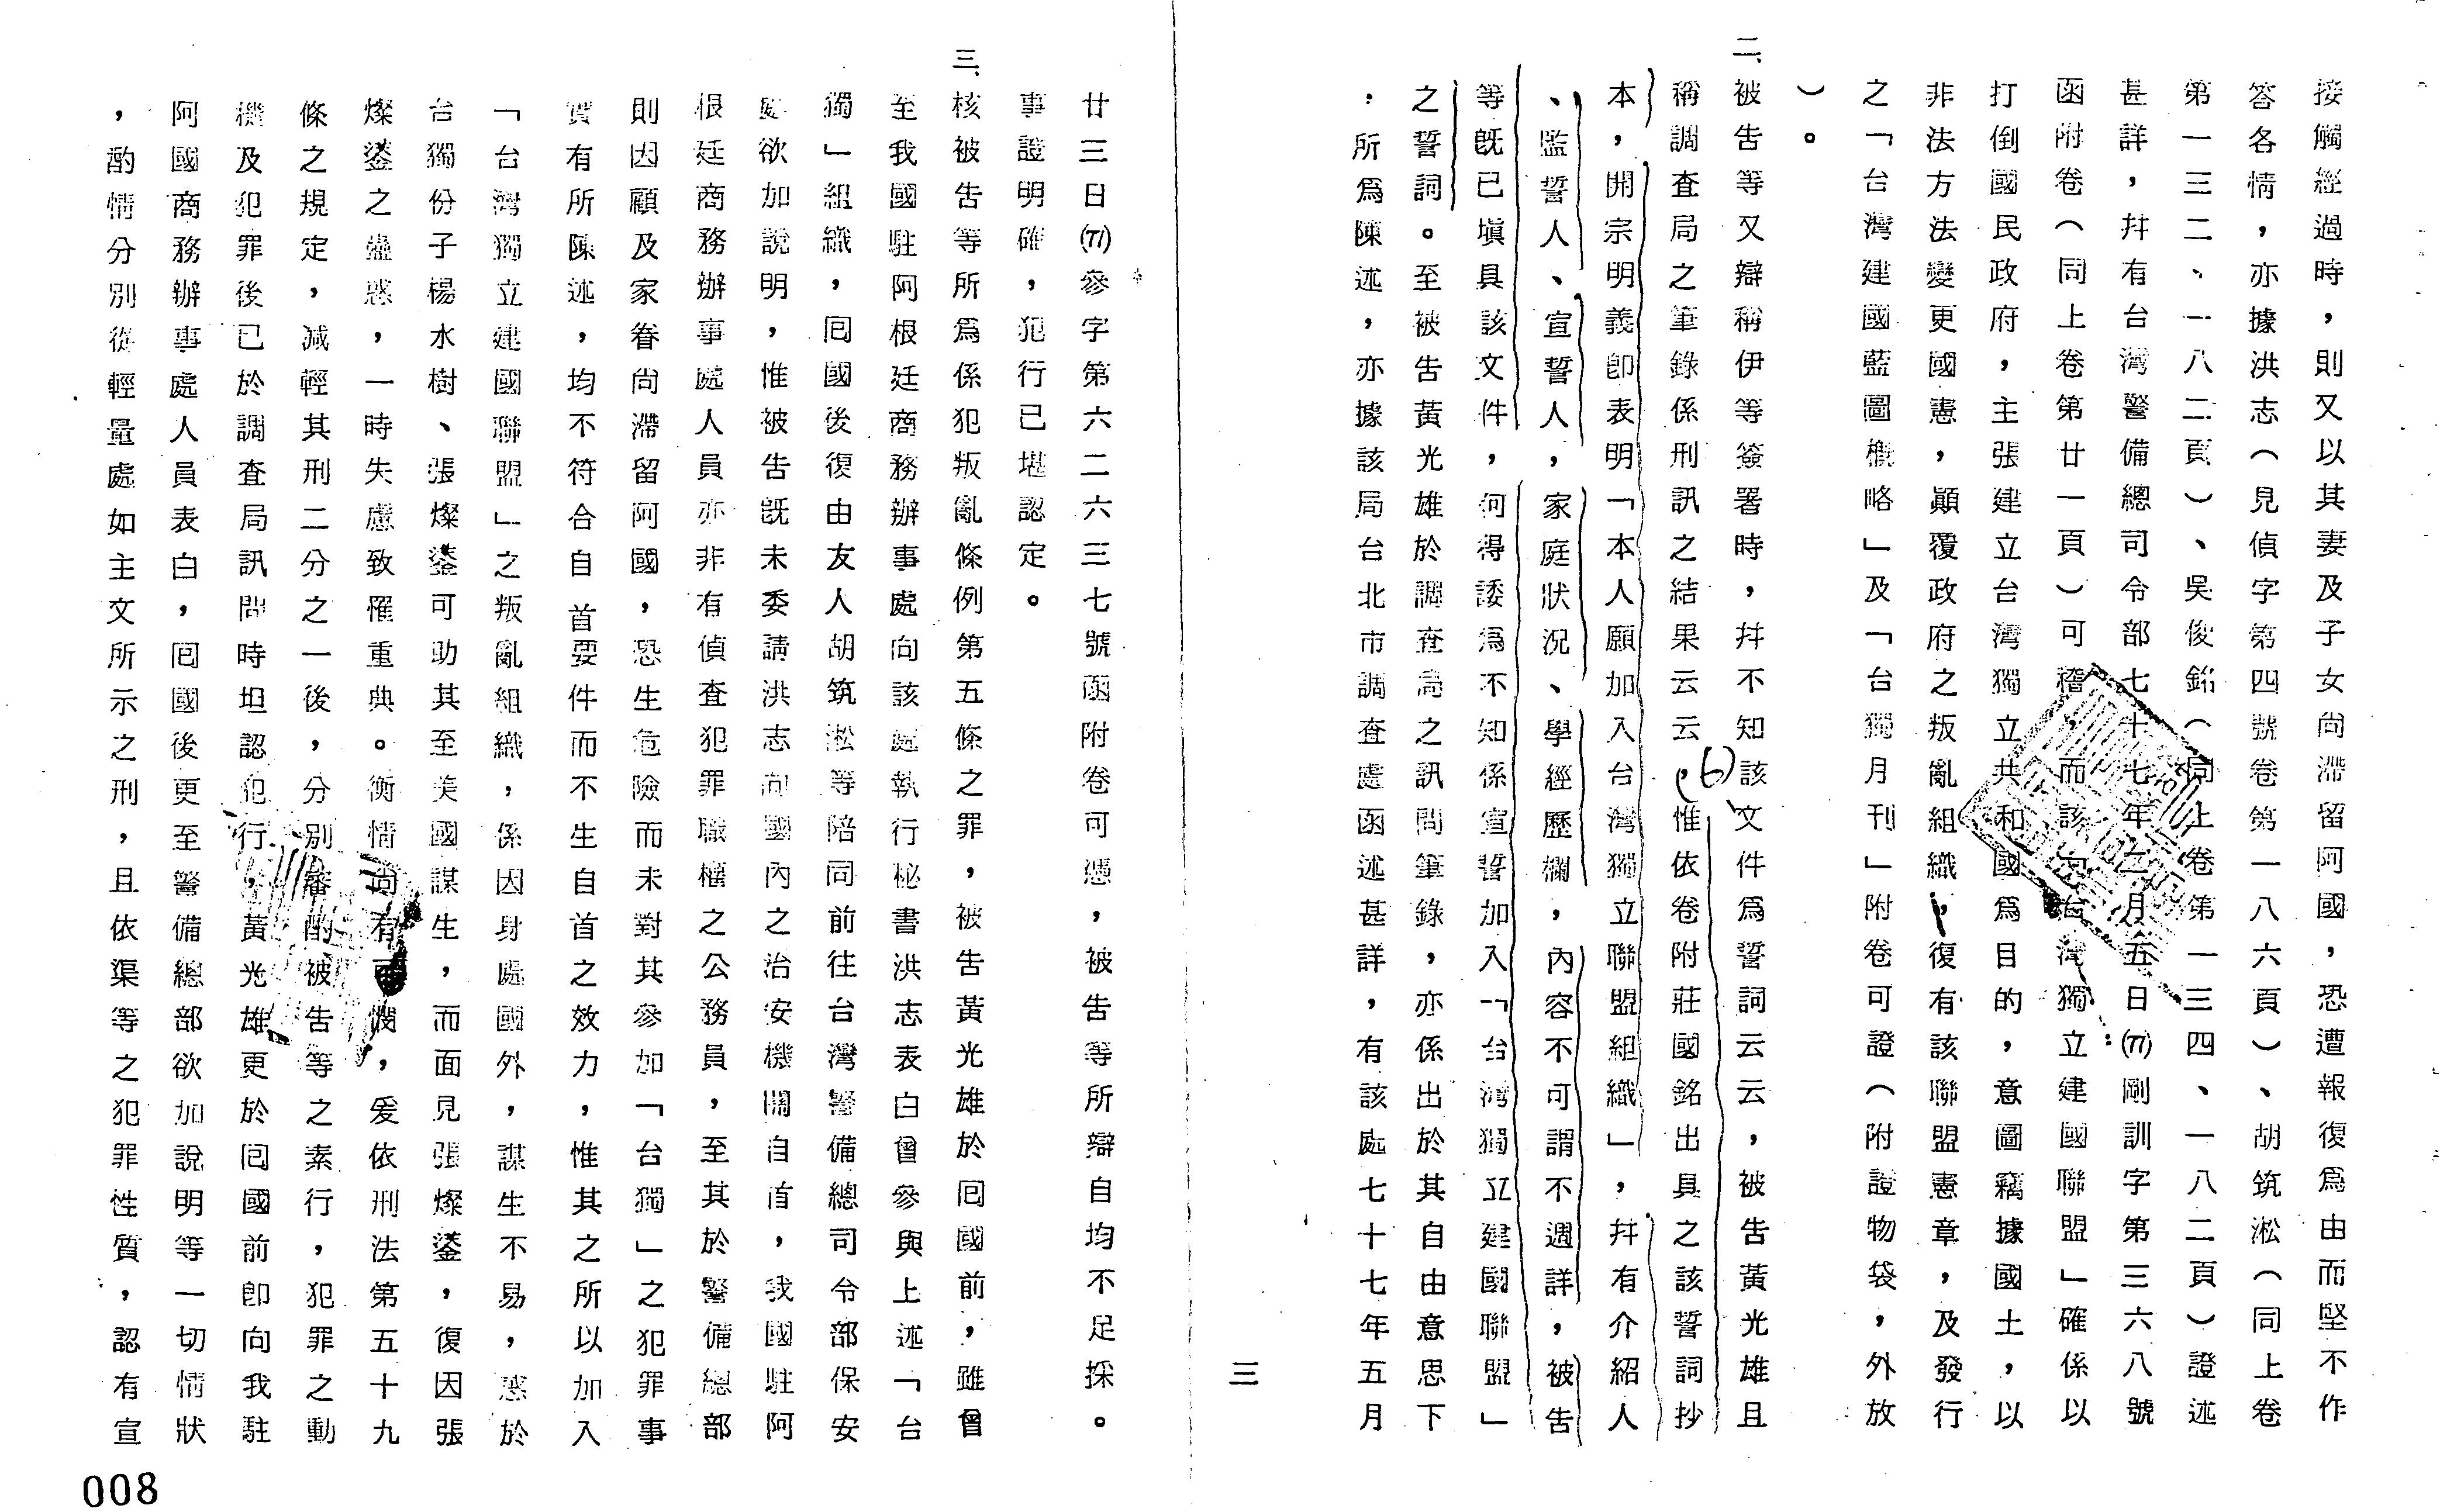 接觸經過時，則又以其妻及子女尚滯留阿國，恐遭報復爲由而堅不作
答各情，亦據洪志（見偵字第四號卷第一八六頁）、胡筑淞（同上卷
第一三二、一八二頁）、吳俊銘（同上卷第一三四、一八二頁）證述
甚詳，幷有台灣警備總司令部七十七年二月五日(77)剛訓字第三六八號
函附卷（同上卷第廿一頁）可稽，而該「台灣獨立建國聯盟」確係以
打倒國民政府，主張建立台灣獨立共和國爲目的，意圖竊據國土，以
非法方法變更國憲，顚覆政府之叛亂組織，復有該聯盟憲章，及發行
之「台灣建國藍圖槪略」及「台獨月刊」附卷可證（附證物袋，外放
）。
二、被告等又辯稱伊等簽署時，幷不知該文件爲誓詞云云，被告黃光雄且
稱調查局之筆錄係刑訊之結果云云，(6)惟依卷附莊國銘出具之該誓詞抄
本，開宗明義卽表明「本人願加入台灣獨立聯盟組織」，幷有介紹人
、監誓人、宣誓人，家庭狀況、學經歷欄，內容不可謂不週詳，被告
等旣已塡具該文件，何得諉爲不知係宣誓加入「台灣獨立建國聯盟」
之誓詞。至被告黃光雄於調查局之訊問筆錄，亦係出於其自由意思下
，所爲陳述，亦據該局台北市調查處函述甚詳，有該處七十七年五月
三
廿三日(77)參字第六二六三七號函附卷可憑，被告等所辯自均不足採。
事證明確，犯行已堪認定。
三、核被告等所爲係犯叛亂條例第五條之罪，被告黃光雄於囘國前，雖曾
至我國駐阿根廷商務辦事處向該處執行秘書洪志表白曾參與上述「台
獨」組織，囘國後復由友人胡筑淞等陪同前往台灣警備總司令部保安
處欲加說明，惟被告旣未委請洪志向國內之治安機關自首，我國駐阿
根廷商務辦事處人員亦非有偵查犯罪職權之公務員，至其於警備總部
則因顧及家眷尚滯留阿國，恐生危險而未對其參加「台獨」之犯罪事
實有所陳述，均不符合自首要件而不生自首之效力，惟其之所以加入
「台灣獨立建國聯盟」之叛亂組織，係因身處國外，謀生不易，惑於
台獨份子楊水樹、張燦鍙可助其至美國謀生，而面見張燦鍙，復因張
燦鍙之蠱惑，一時失慮致罹重典。衡情尚有可憫，爰依刑法第五十九
條之規定，減輕其刑二分之一後，分別審酌被告等之素行，犯罪之動
機及犯罪後已於調查局訊問時坦認犯行，黃光雄更於囘國前卽向我駐
阿國商務辦事處人員表白，囘國後更至警備總部欲加說明等一切情狀
，酌情分別從輕量處如主文所示之刑，且依渠等之犯罪性質，認有宣
008